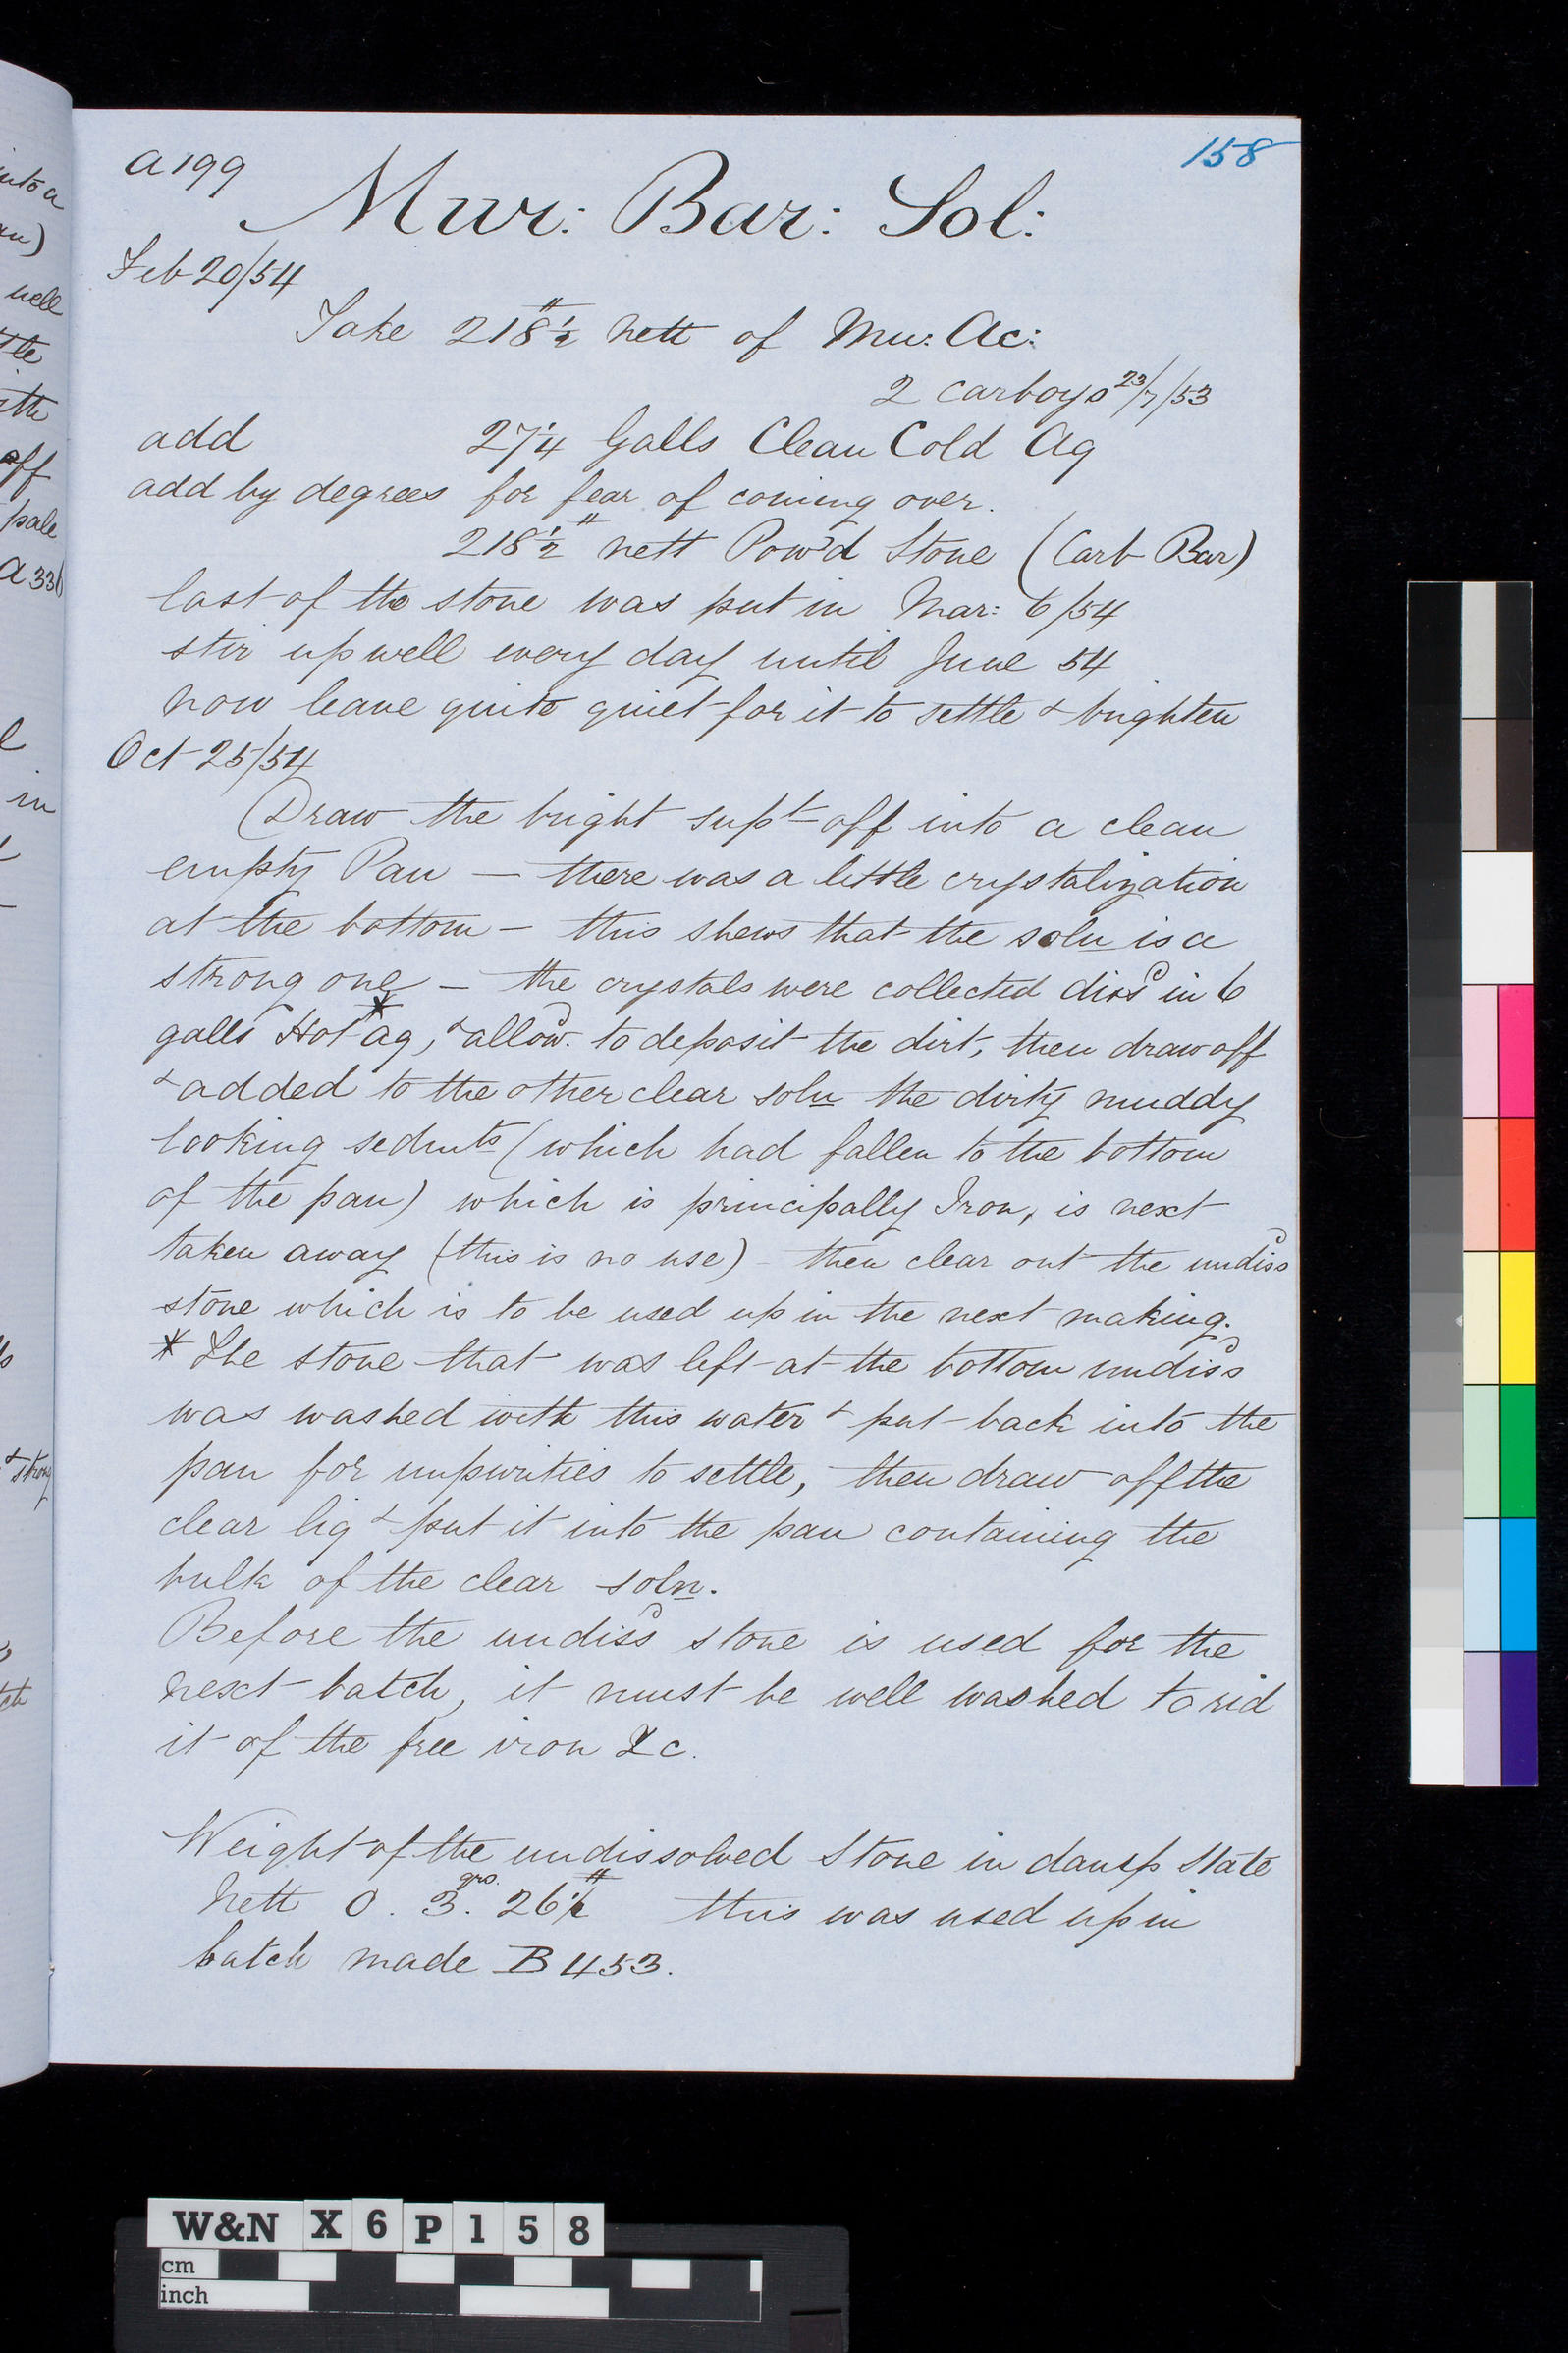 a 199
158
Mur: Bar: Sol:
Feb 20/54
Take 218½# nett of Mu: Ac:
2 carboys 23/7/53
add 27¼ Galls Clean Cold Aq
add by degrees for fear of coming over.
218½# nett Pow'd Stone (Carb Bar)
last of the stone was put in Mar: 6/54
stir up well every day until June 54
now leave quite quiet for it to settle & brighten
Oct 25/54
Draw the bright supt off into a clean
empty Pan — there was a little crystalization
at the bottom — this shews that the soln is a
strong one — the crystals were collected dissd in 6
galls Hot* aq, & allowd. to deposit the dirt, then draw off
& added to the other clear soln the dirty muddy
looking sedmts (which had fallen to the bottom
of the pan) which is principally Iron, is next
taken away (this is no use) - then clear out the undissd
stone which is to be used up in the next making.
* The stone that was left at the bottom undissd
was washed with this water & put back into the
pan for impurities to settle, then draw off the
clear liq & put it into the pan containing the
bulk of the clear soln.
Before the undissd stone is used for the
next batch, it must be well washed to rid
it of the free iron &c.
Weight of the undissolved Stone in damp state
Nett 0. 3. qrs. 26½# this was used up in
batch made B 453.
into a
well
with
off
pale
a 336
in
& strong
W&N X 6 P 1 5 8
cm
inch